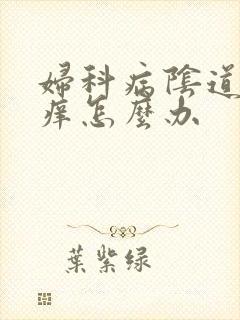 婦科病陰道
痒怎麼办
葉紫绿